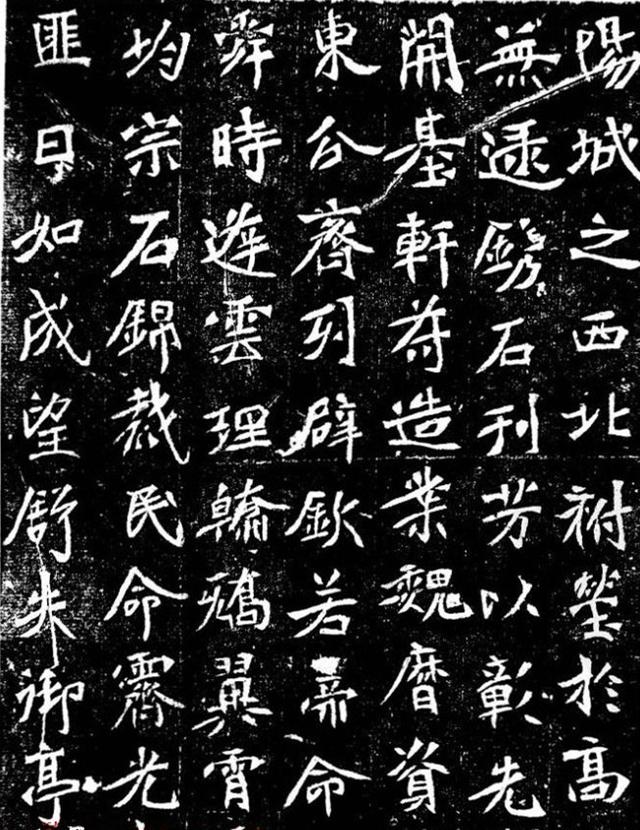 陽城之西北祔塋於高
無鐫石刊芳以彰先
開基軒符造業魏曆資
東公齊列辟欽若帝命
舜時遊雲理翰矯翼霄
均宗石錦裁民命霽光
匪日如成望舒失御亭